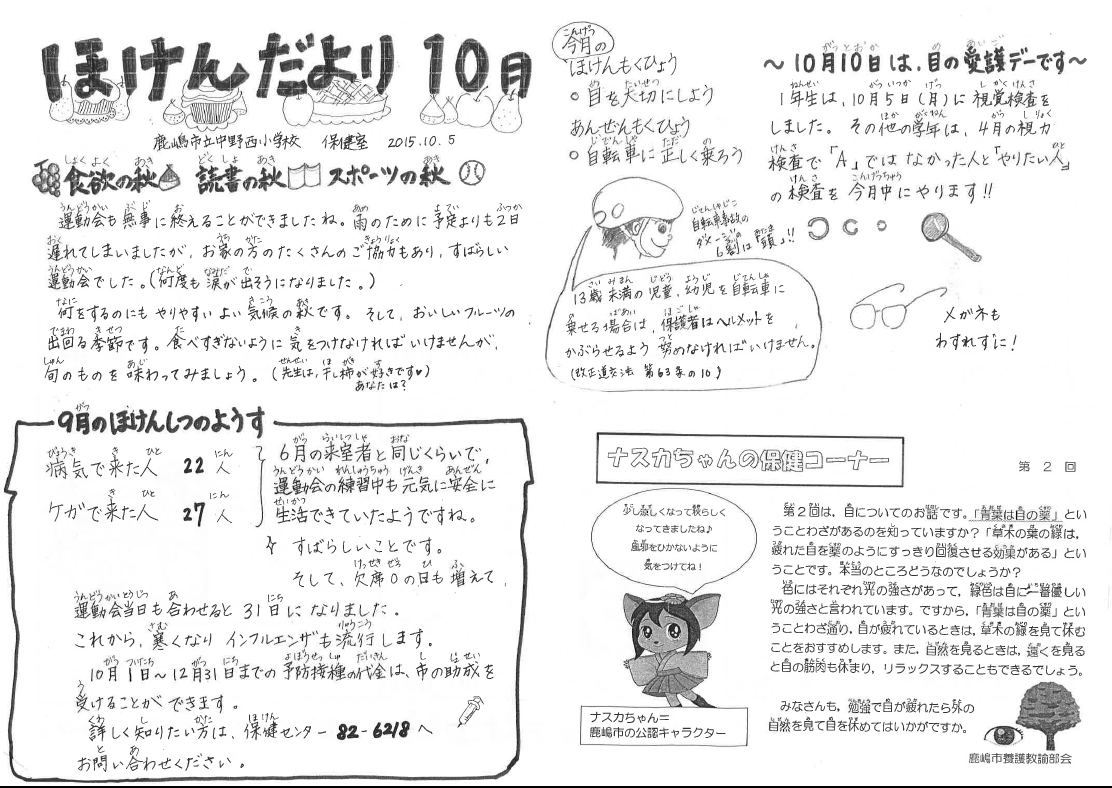 ほけんだより 10月
鹿嶋市立中野西小学校 保健室 2015.10.5
食欲の秋 読書の秋 スポーツの秋
運動会も無事に終えることができましたね。雨のために予定よりも2日
遅れてしまいましたが、お家の方のたくさんのご協力もあり、すばらしい
運動会でした。(何度も涙が出そうになりました。)
何をするのにもやりやすいよい気候の秋です。そして、おいしいフルーツの
出回る季節です。食べすぎないように気をつけなければいけませんが、
旬のものを味わってみましょう。(先生は、干し柿が好きです♡)
あなたは?
9月のほけんしつのようす
病気で来た人 22人
ケガで来た人 27人
6月の来室者と同じくらいで、
運動会の練習中も元気に安全に
生活できていたようですね。
すばらしいことです。
そして、欠席0の日も増えて、
運動会当日も合わせると31日になりました。
これから、寒くなりインフルエンザも流行します。
10月1日~12月31日までの予防接種の代金は、市の助成を
受けることができます。
詳しく知りたい方は、保健センター 82-6218へ
お問い合わせください。
今月の
ほけんもくひょう
○目を大切にしよう
あんぜんもくひょう
○自転車に正しく乗ろう
自転車事故の
ダメージの
6割は「頭」!!
13歳未満の児童、幼児を自転車に
乗せる場合は、保護者はヘルメットを
かぶらせるよう努めなければいけません。
(改正道交法 第63条の10)
~10月10日は、目の愛護デーです~
1年生は、10月5日(月)に視覚検査を
しました。その他の学年は、4月の視力
検査で「A」ではなかった人と「やりたい人」
の検査を今月中にやります!!
メガネも
わすれずに!
ナスカちゃんの保健コーナー
第2回
少し涼しくなって秋らしく
なってきましたね♪
風邪をひかないように
気をつけてね!
ナスカちゃん=
鹿嶋市の公認キャラクター
第2回は、目についてのお話です。「青葉は目の薬」とい
うことわざがあるのを知っていますか?「草木の葉の緑は、
疲れた目を薬のようにすっきり回復させる効果がある」とい
うことです。本当のところどうなのでしょうか?
色にはそれぞれ光の強さがあって、緑色は目に一番優しい
光の強さと言われています。ですから、「青葉は目の薬」とい
うことわざ通り、目が疲れているときは、草木の緑を見て休む
ことをおすすめします。また、自然を見るときは、遠くを見る
と目の筋肉も休まり、リラックスすることもできるでしょう。
みなさんも、勉強で目が疲れたら外の
自然を見て目を休めてはいかがですか。
鹿嶋市養護教諭部会